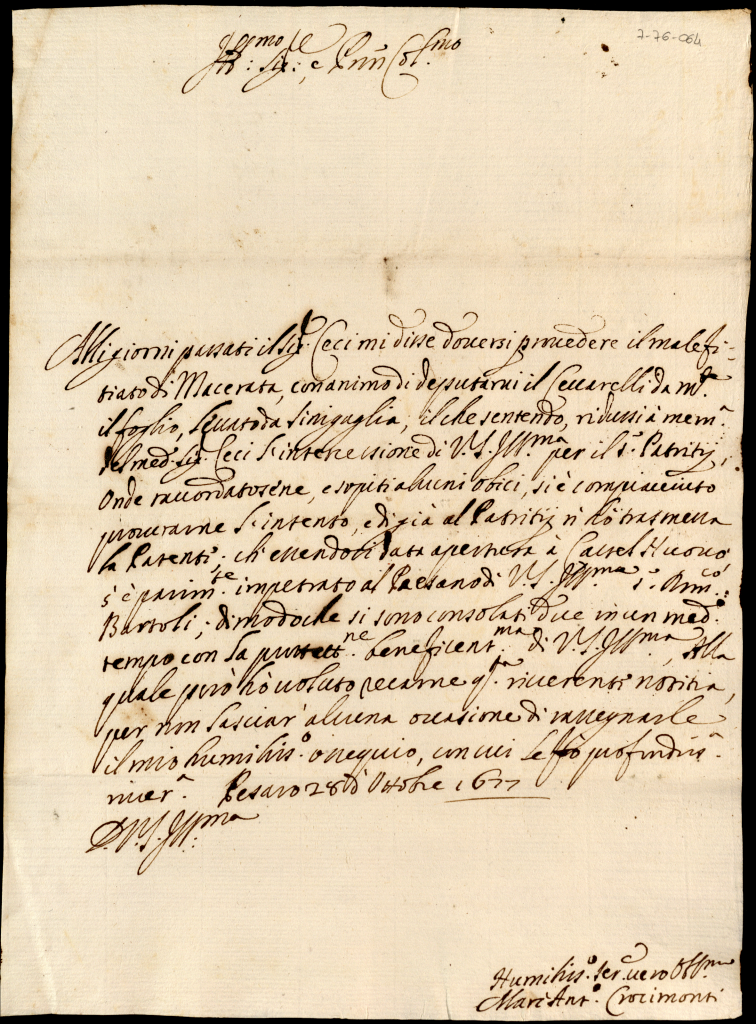 7-76-064
Ill:mo Sig:re e Pnn Col:mo
Alli giorni passati il Sig:r Ceci mi disse doversi provedere il malefi-
tiato di Macerata, con animo di deputarvi il Ceccarelli da m.te
il foglio, levato da Sinigaglia, il che sentendo, ridussi à mem.a
del med. Sig.r Ceci l'intercessione di V.S. Ill:ma per il s.r Patritij,
Onde raccordatosene, e sopiti alcuni obici, si è compiacciuto
procurarne l'intento, e di già al Patritij n'hò trasmessa
la Patente; ch'essendosi data apertura à Castel Nuovo
s'è parim.te impetrato al Paesano di V.S. Ill:ma s.r Ann.co
Bartoli; di modo che si sono consolati due in un med.o
tempo con la benificent.ma di V.S. Ill:ma, Alla
quale però hò voluto recarne q.ta riverente notitia,
per non lasciar' alcuna occasione di rassegnarle
il mio humiliss.o ossequio, con cui le fò profondiss.a
river.a Pesaro 28 d'Ottobre 1677
D. V.S. Ill:ma
Humiliss.o ser.e vero Obl:mo
Marc'Ant.o Crocimonti